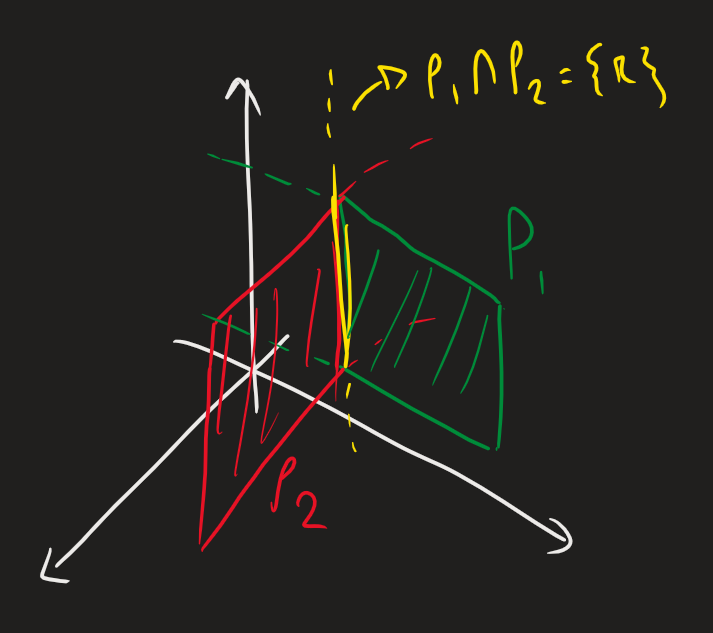 P₁∩P₂={R}
P₁
P₂